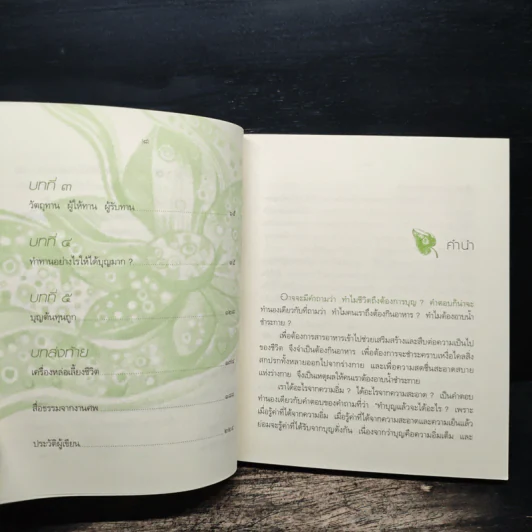 บทที่ ๓
วัตถุทาน ผู้ให้ทาน ผู้รับทาน
บทที่ ๔
ทำทานอย่างไรให้ได้บุญมาก ?
บทที่ ๕
บุญต้นทุนถูก
บทส่งท้าย
เครื่องหล่อเลี้ยงชีวิต
สื่อธรรมจากงานศพ
ประวัติผู้เขียน
คำนำ
อาจจะมีคำถามว่า ทำไมชีวิตถึงต้องการบุญ ? คำตอบก็น่าจะ
ทำนองเดียวกับที่ถามว่า ทำไมคนเราถึงต้องกินอาหาร ? ทำไมต้องอาบน้ำ
ชำระกาย ?
เพื่อต้องการสารอาหารเข้าไปช่วยเสริมสร้างและสืบต่อความเป็นไป
ของชีวิต จึงจำเป็นต้องกินอาหาร เพื่อต้องการจะชำระคราบเหงื่อไคลสิ่ง
สกปรกทั้งหลายออกไปจากร่างกาย และเพื่อความสดชื่นสะอาดสบาย
แห่งร่างกาย จึงเป็นเหตุผลให้คนเราต้องอาบน้ำชำระกาย
เราได้อะไรจากความอิ่ม ? ได้อะไรจากความสะอาด ? เป็นคำตอบ
ทำนองเดียวกับคำตอบของคำถามที่ว่า "ทำบุญแล้วจะได้อะไร ? เพราะ
เมื่อรู้ค่าที่ได้จากความอิ่ม เมื่อรู้ค่าที่ได้จากความสะอาดและความเย็นแล้ว
ย่อมจะรู้ค่าที่ได้รับจากบุญดังกัน เนื่องจากว่าบุญคือความอิ่มเต็ม และ